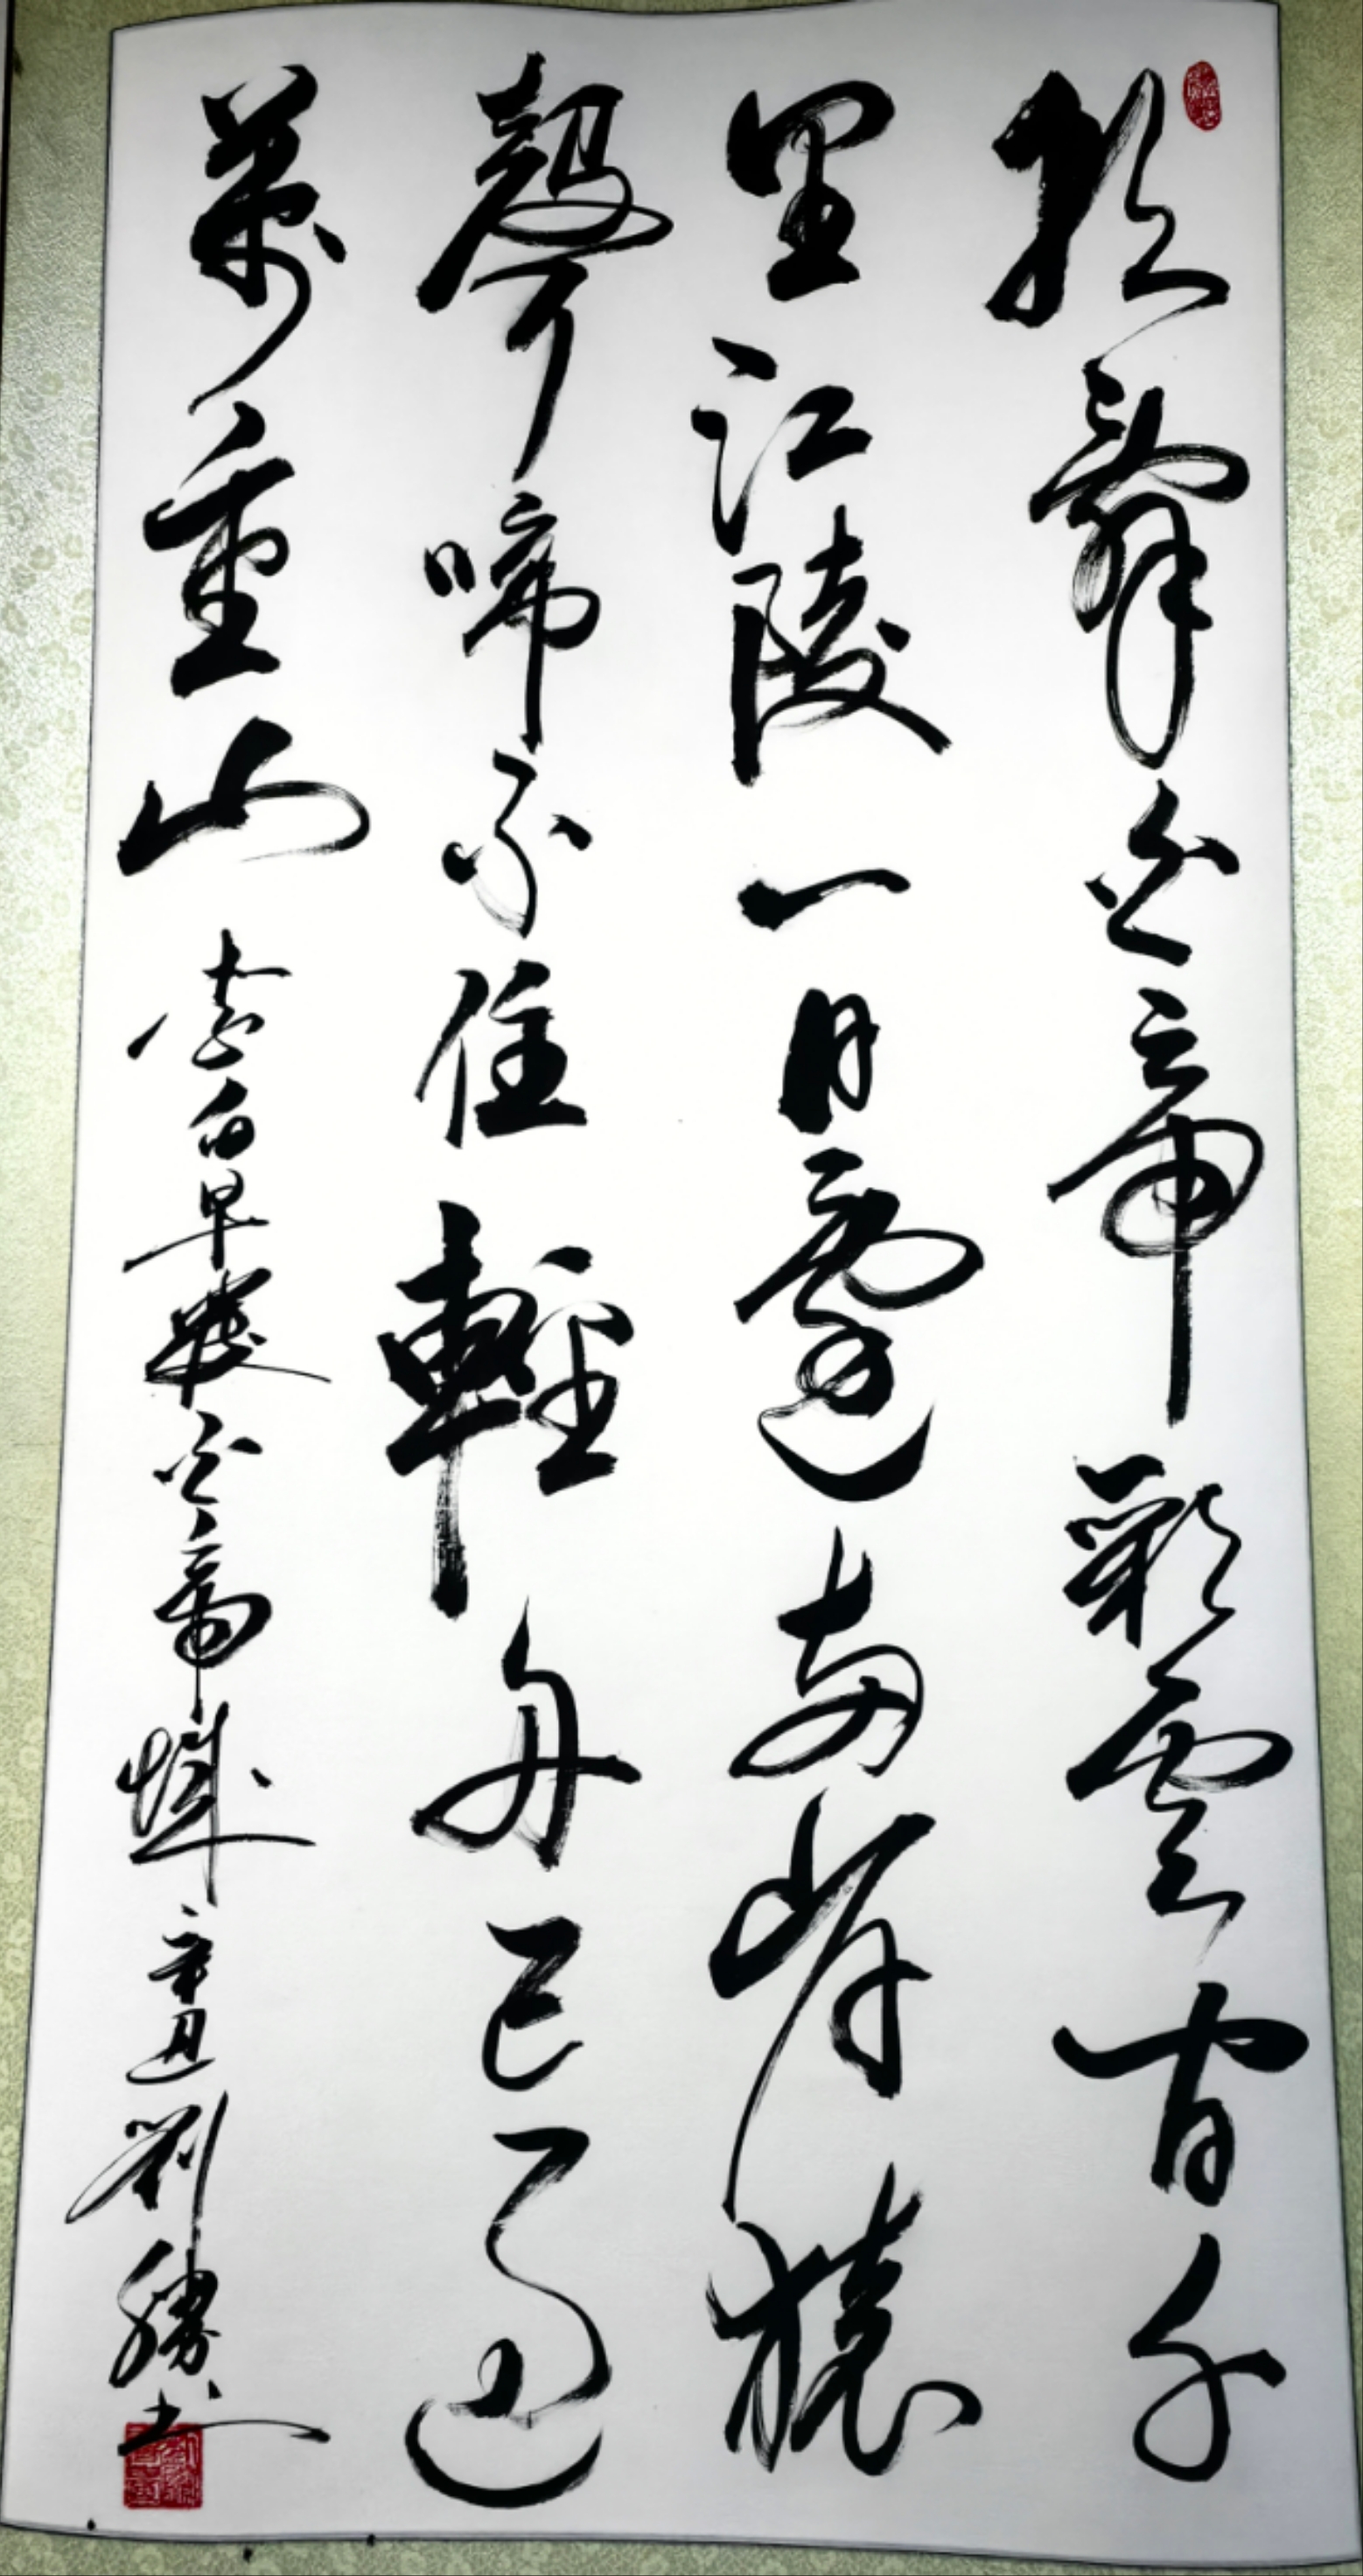 朝辭白帝彩雲間千
里江陵一日還兩岸猿
聲啼不住輕舟已過
萬重山 李白早發白帝城 辛丑劉勝書